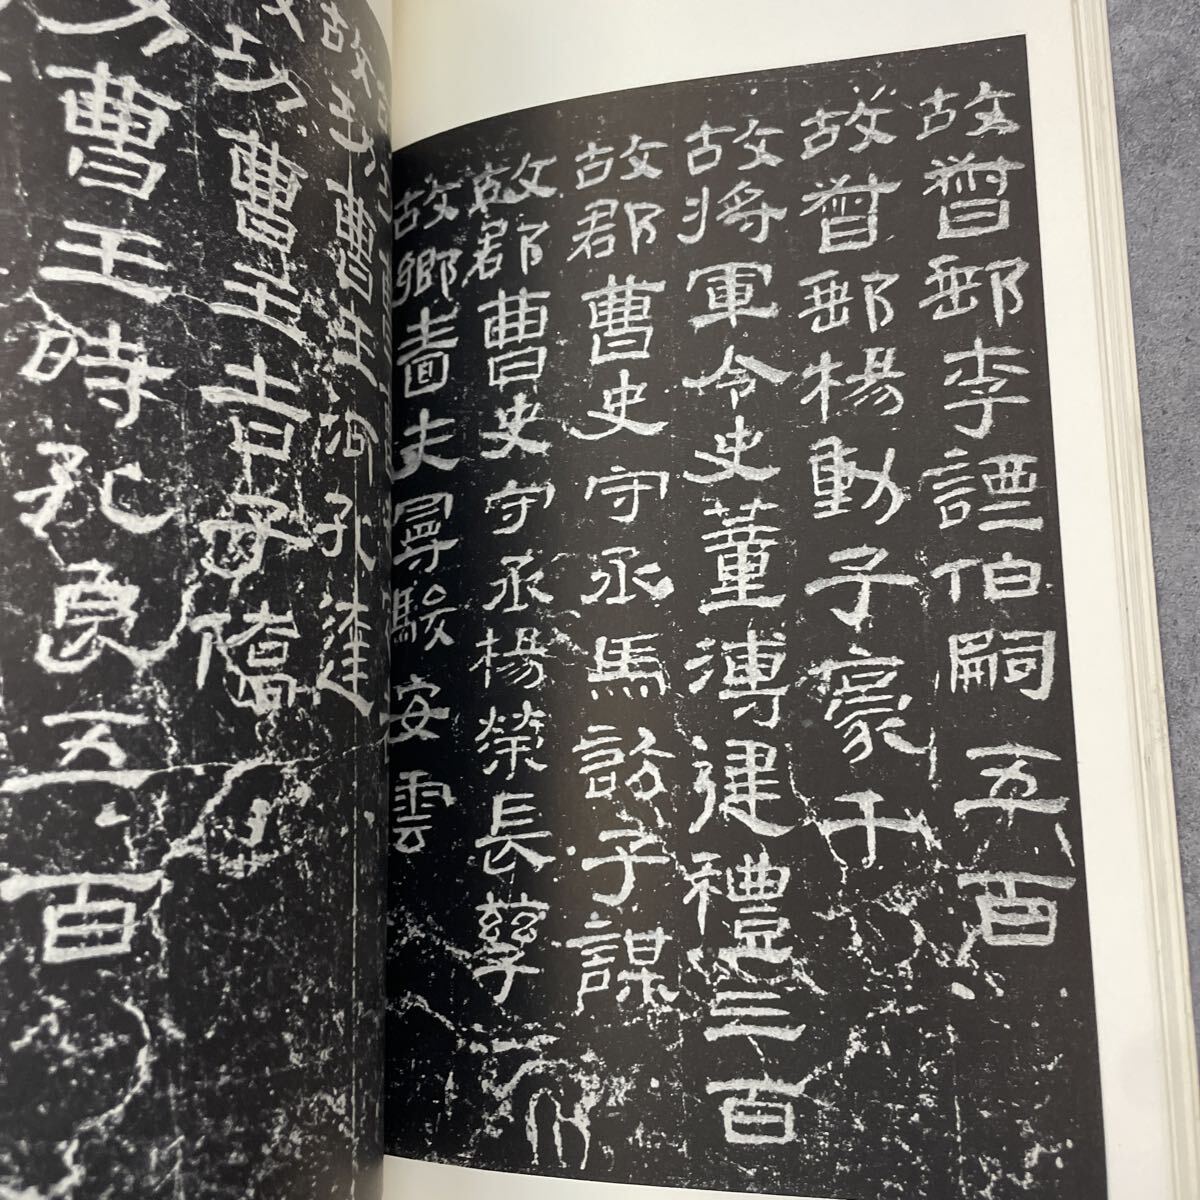 故督郵李諲伯嗣五百
故督郵楊動子豪千
故將軍令史董溥建禮三百
故郡曹史守丞馬訪子謀
故郡曹史守丞楊榮長孳
故鄉嗇夫曼駿安雲
故功曹王河孔達
功曹王吉子僑
功曹王時孔良五百